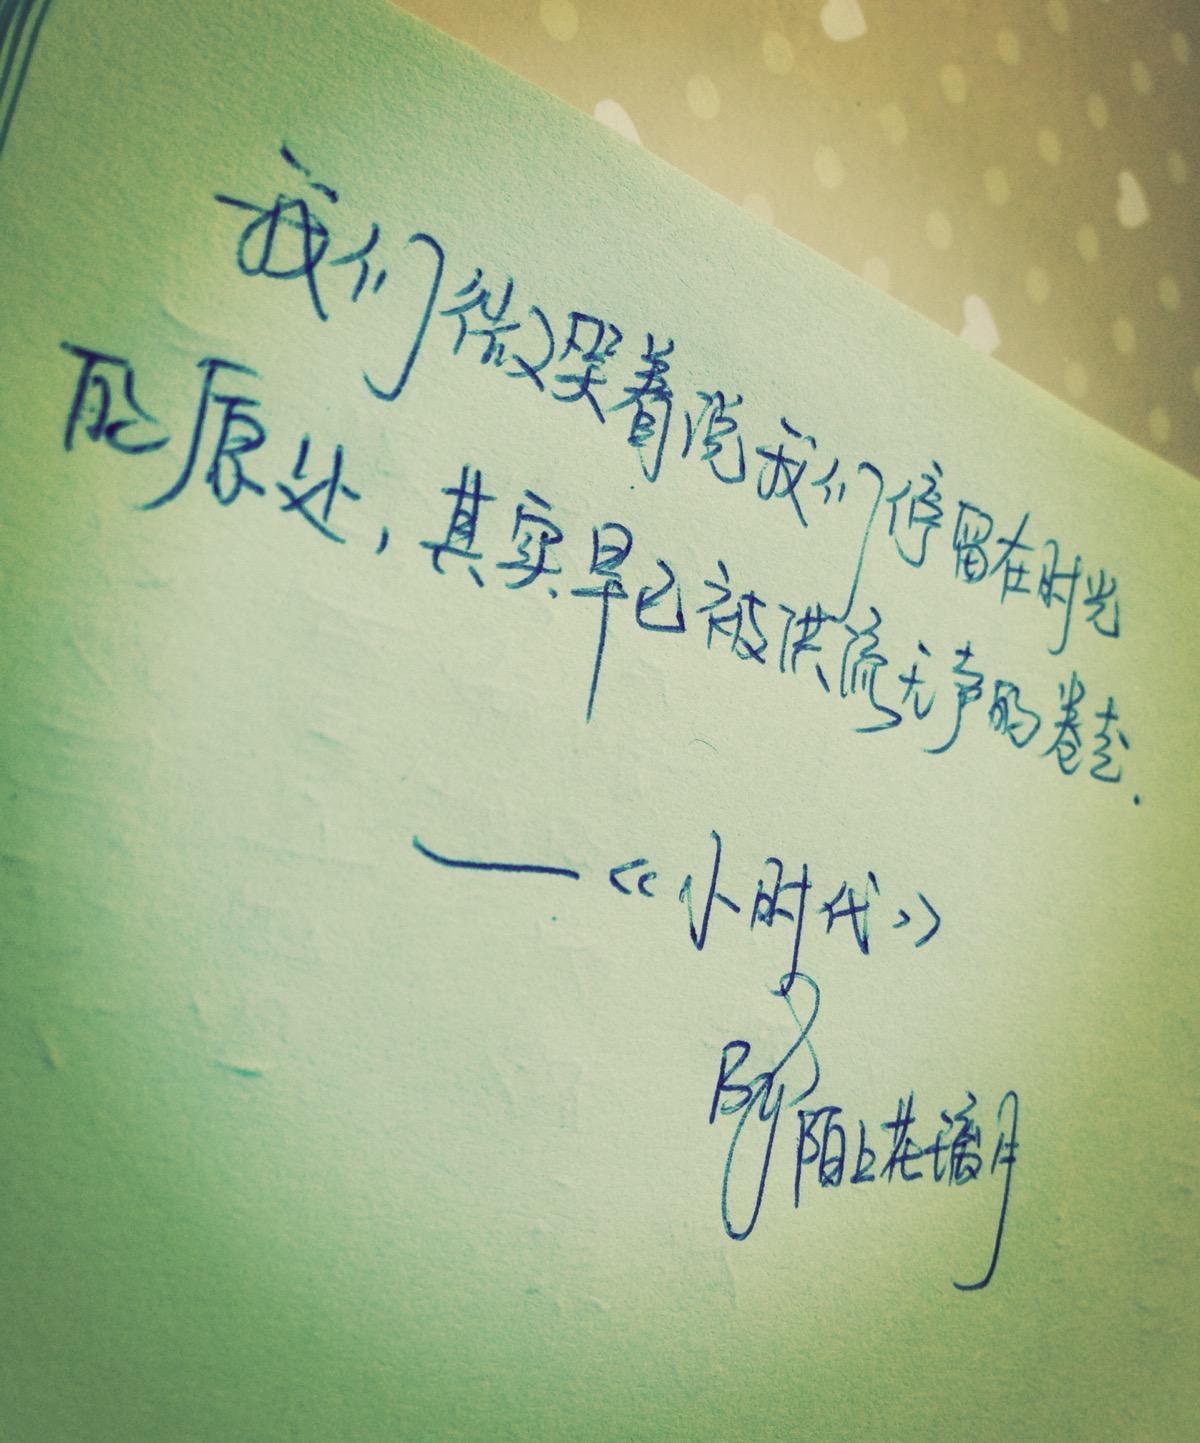 我们微笑着说我们停留在时光
的原处，其实早已被洪流无声的卷走.
——《小时代》
By 陌上花璃月